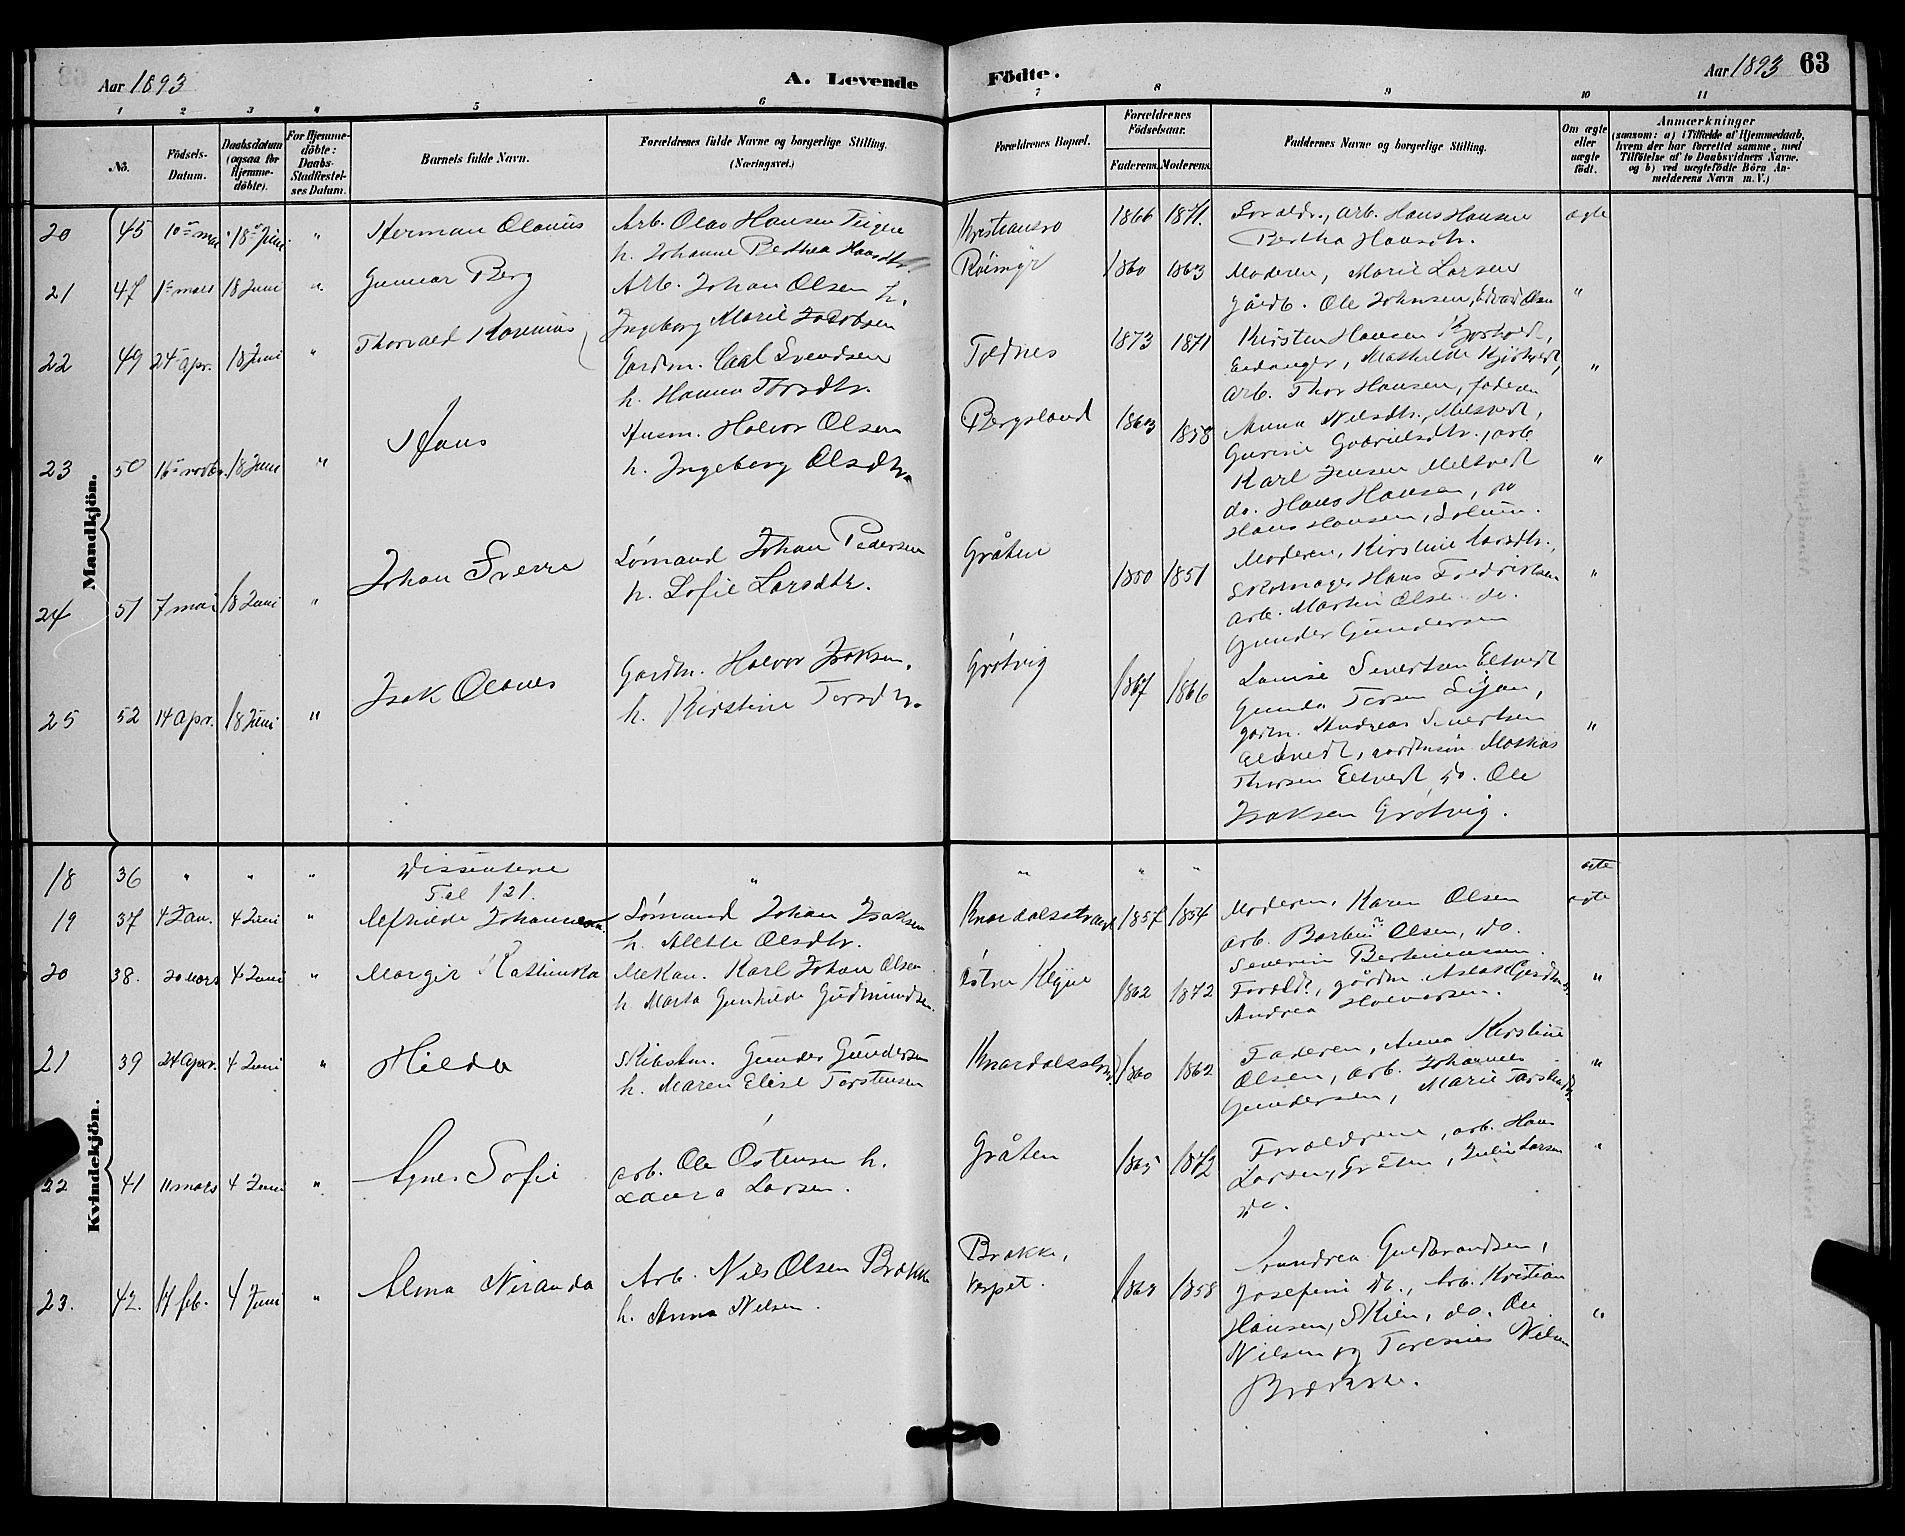 Aar 1893
A. Levende Födte.
Aar 1893 63
1 2 3 4 5 6 7 8 9 10 11
No.
Födsels-Datum.
Daabsdatum (ogsaa for Hjemme-döbte).
For Hjemme-döbte: Daabs-Stadfæstel-ses Datum.
Barnets fulde Navn.
Forældrenes fulde Navne og borgerlige Stilling.
(Næringsvei.)
Forældrenes Bopæl.
Forældrenes Födselsaar.
Faderens. Moderens.
Faddernes Navne og borgerlige Stilling.
Om ægte eller uægte födt.
Anmærkninger
(saasom: a) i Tilfælde af Hjemmedaab, hvem der har forrettet samme, med Tilföielse af to Daabsvidners Navne. og b) ved uægtefödte Börn An-melderens Navn m. V.)
Mandkjön.
20 45 10de mai 18de Juni " Herman Olanius Arb. Olav Hansen Teigen
h. Johanne Berthea Hansdtr. Kristiansro 1866 1871. Foræld., arb. Hans Hansen
Bertha Hansdtr. ægte
21 47 1ste mars 18 Juni " Gunnar Berg Arb. Johan Olsen h.
Ingeborg Marie Jacobsen Röimyr 1860 1863 Moderen, Marie Larsen
gårdb. Ole Johnsen, Edvard Olsen "
22 49 24de apr. 18 Juni " Thorvald Rasmus Gardm. Carl Svendsen
h. Hanna Torsdtr. Tødnes 1873 1871 Kirsten Hansen
Mathilde
Arb. Thor Hansen, faderen "
23 50 16de novbr. 18 Juni " Hans Husm. Halvor Olsen
h. Ingeborg Olsdtr. Bergsland 1863 1858 Anna Nilsdtr.
Gurine Gabrielsdtr., arb.
Karl Jensen Meltvedt
do. Hans Hansen, do
Hans Hansen, Solum. "
24 51 7 mai 18 Juni " Johan Sverre Sømand Johan Pedersen
h. Sofie Larsdtr. Gråten 1850 1851 Moderen, Kirstine Larsdtr.,
Skomager Hans Fredriksen
arb. Martin Olsen do.
Gunder Gundersen "
25 52 14 apr. 18 Juni " Isak Olanes Gardm. Halvor Isaksen.
h. Kirstine Torsdtr. Grøtvig 1867 1866 Lauise Sivertsen Eltvedt
Gunda Torsen
gardm. Andreas Sivertsen
Eltvedt, Mathias
Thorsen Eltvedt do. Ole
Isaksen Grøtvig. "
Kvindekjön.
18 36 " " " Dissenterne
Fol 121. " " " " ægte
19 37 4 Jan. 4 Juni " Alfhilde Johannesen. Sømand Johan Isaksen
h. Alette Olsdtr. Knardalsstrand 1857 1854 Moderen, Karen Olsen
arb. Olsen, do.
Severin Bertinussen ægte
20 38. 20 mars 4 Juni " Margit Kathinka Mekan. Karl Johan Olsen
h. Marta Gunhilde Gudmundsen. østre Klyve 1862 1872 Foræld., gårdm. Aslak
Andrea Halvorsen. "
21 39 24 apr. 4 Juni " Hilda Skibstm. Gunder Gundersen
h. Maren Elise Torstensen Knardalsstr. 1860 1862 Faderen, Anna Kirstine
Olsen, arb. Johannes
Gundersen, Marie Torstensdtr. "
22 41 11 mars 4 Juni " Agnes Sofie arb. Ole Östensen h.
Laura Larsen. Gråten 1865 1872 Forældrene, arb. Hans
Larsen, Gråten, Julie Larsen
do. "
23. 42. 14 feb. 4 Juni " Alma Niranda Arb. Nils Olsen Brække
h. Anna Nilsen. Brække,
Vespet. 1863 1858 Andrea Guldbrandsen,
Josefine do., Arb. Kristian
Hansen, Skien, do. Ole
Nilsen og Toresius Nilsen
Brække. "